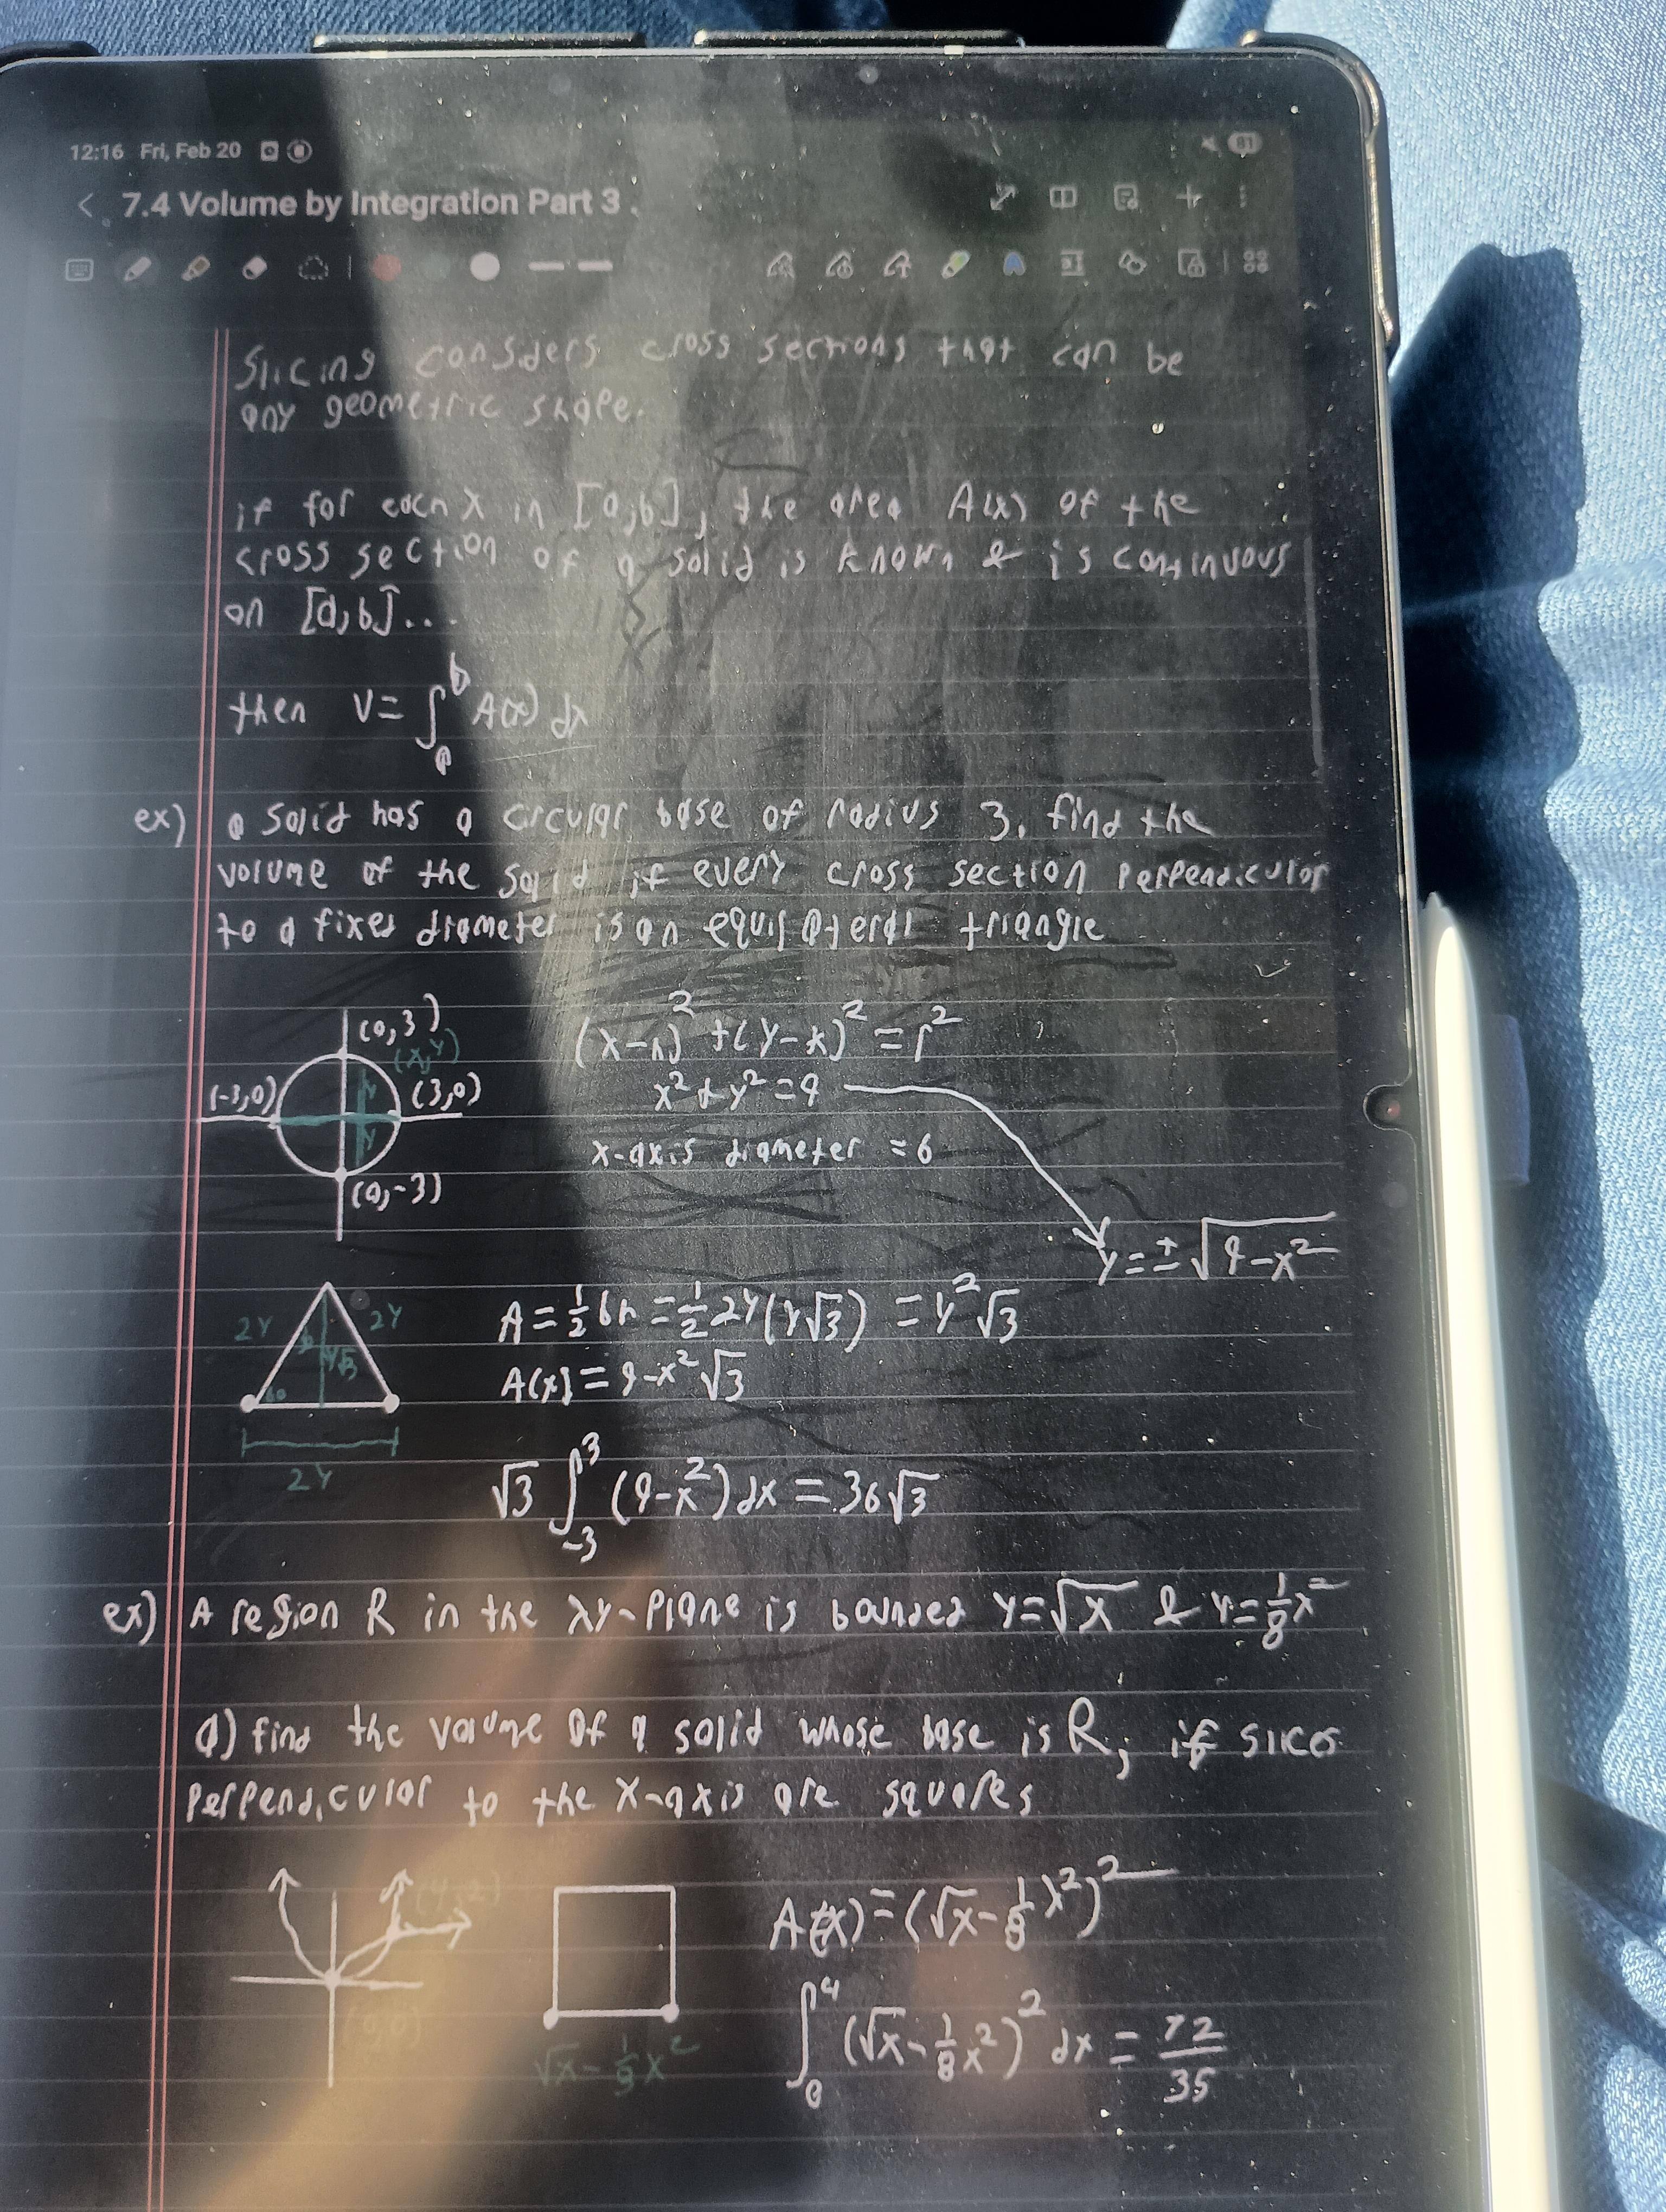 12:16 Fri, Feb 20
81
< 7.4 Volume by Integration Part 3
Slicing considers cross sections that can be
any geometric shape.
if for each x in [a,b], the area A(x) of the
cross section of a solid is known & is continuous
on [a,b]...
then V=∫_a^b A(x) dx
ex) a solid has a circular base of radius 3, find the
volume of the solid if every cross section perpendicular
to a fixed diameter is an equilateral triangle
(0,3)
(x,y)
(-3,0)
(3,0)
y
y
(0,-3)
(x-h)²+(y-k)²=r²
x²+y²=9
x-axis diameter =6
y=±√(9-x²)
2y
2y
y√3
60
2y
A=½bh=½2y(y√3)=y²√3
A(x)=9-x²√3
√3∫_-3^3(9-x²)dx=36√3
ex) A region R in the xy-plane is bounded y=√x & y=⅛x²
a) find the volume of a solid whose base is R, if slices
perpendicular to the x-axis are squares
(4,2)
(0,0)
√x-⅛x²
A(x)=(√x-⅛x²)²
∫_0^4(√x-⅛x²)²dx=72/35